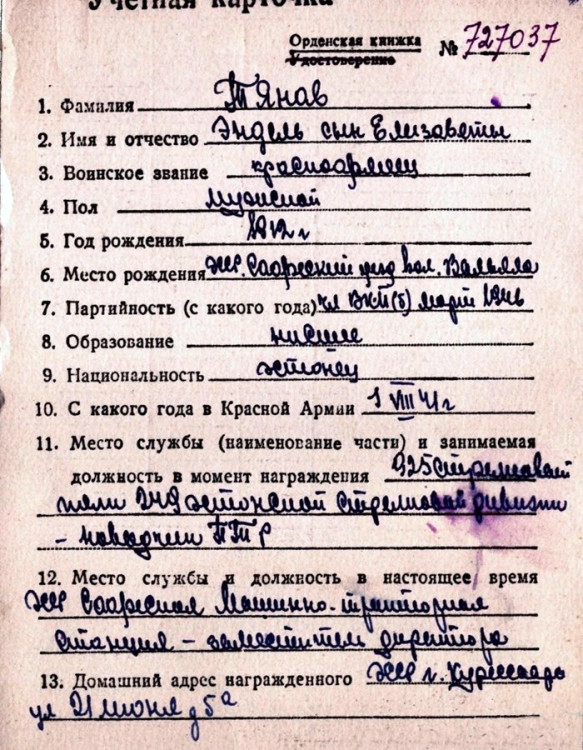 Учетная карточка
Орденская книжка
Удостоверение № 727037
1. Фамилия Тянав
2. Имя и отчество Эндель сын Елизаветы
3. Воинское звание красноармеец
4. Пол мужской
5. Год рождения 1912 г
6. Место рождения ЭССР. Саареский уезд вол. Вальяла
7. Партийность (с какого года) чл ВКП(б) март 1946
8. Образование низшее
9. Национальность эстонец
10. С какого года в Красной Армии 1 VIII 41 г
11. Место службы (наименование части) и занимаемая
должность в момент награждения 925 Стрелковый
полк 249 эстонской стрелковой дивизии
- наводчик ПТР
12. Место службы и должность в настоящее время
ЭССР Саареская Машинно-тракторная
станция - заместитель директора
13. Домашний адрес награжденного ЭССР г. Курессааре
ул 21 июня д 5а